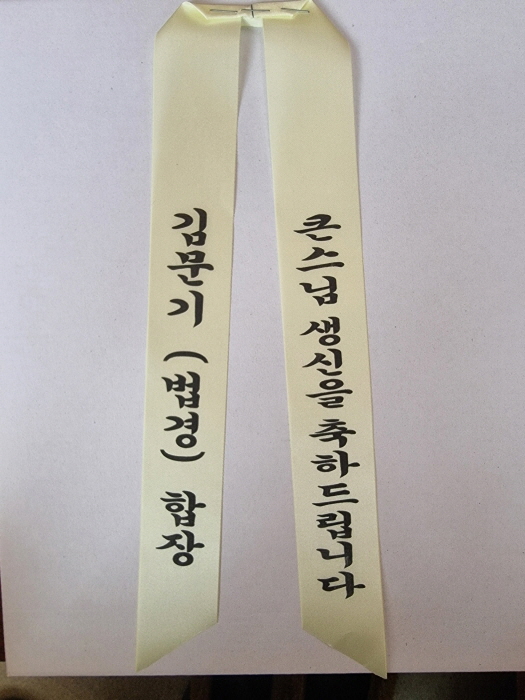 큰스님 생신을 축하드립니다
김문기 (법경) 합장